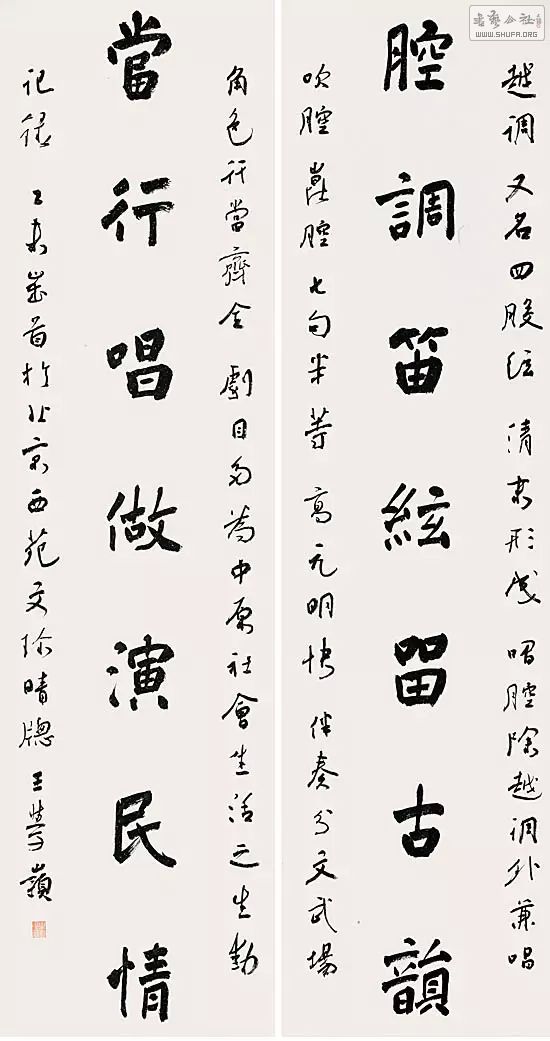 書藝公社
WWW.SHUFA.ORG
越调又名四股弦 清末形成 唱腔除越调外兼唱
腔調笛絃留古韻
吹腔崑腔七句半等 高亢明快 伴奏分文武場
角色行當齊全 劇目多為中原社會生活之生動
當行唱做演民情
记録 乙未歲首於北京西苑文珍晴牕 王學嶺